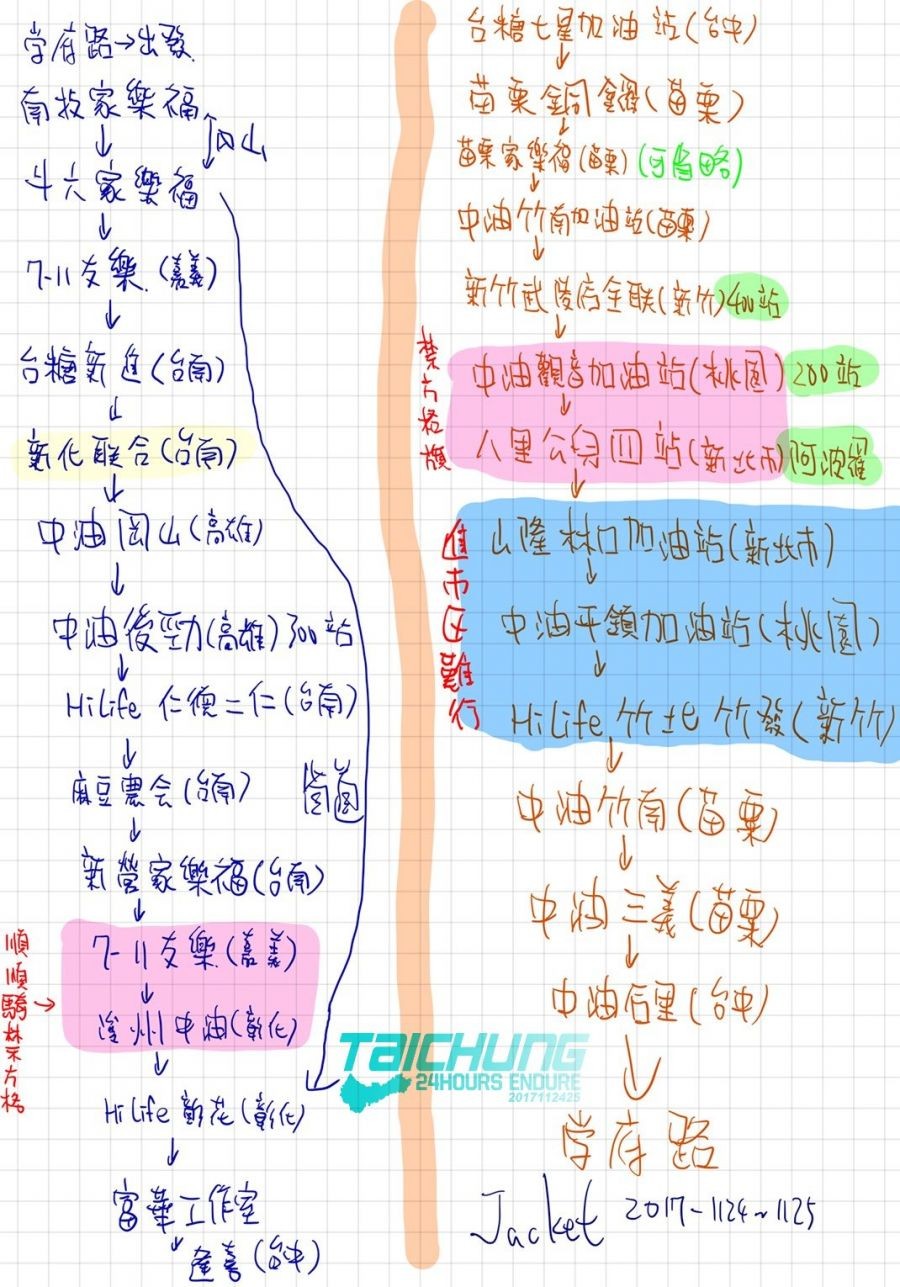 学府路→出發
南投家樂福
斗六家樂福
7-11友樂(嘉義)
台糖新進(台南)
新化联合(台南)
中油岡山(高雄)
中油後勁(高雄)300站
HiLife 仁德二仁(台南)
麻豆農会(台南)
新營家樂福(台南)
7-11友樂(嘉義)
順順騎禁方格→
溪州中油(彰化)
HiLife 彰花(彰化)
富華工作室
逢喜(台中)
台糖七星加油站(台中)
苗栗銅鑼(苗栗)
苗栗家樂福(苗栗)(可省略)
中油竹南加油站(苗栗)
新竹武陵店全联(新竹)400站
禁方格旗
中油觀音加油站(桃園)200站
八里公兒四站(新北市)阿波羅
進市区難行
山隆林口加油站(新北市)
中油平鎮加油站(桃園)
HiLife 竹北竹發(新竹)
中油竹南(苗栗)
中油三義(苗栗)
中油后里(台中)
学府路
TAICHUNG
24HOURS ENDURE
2017112425
Jacket 2017-1124~1125